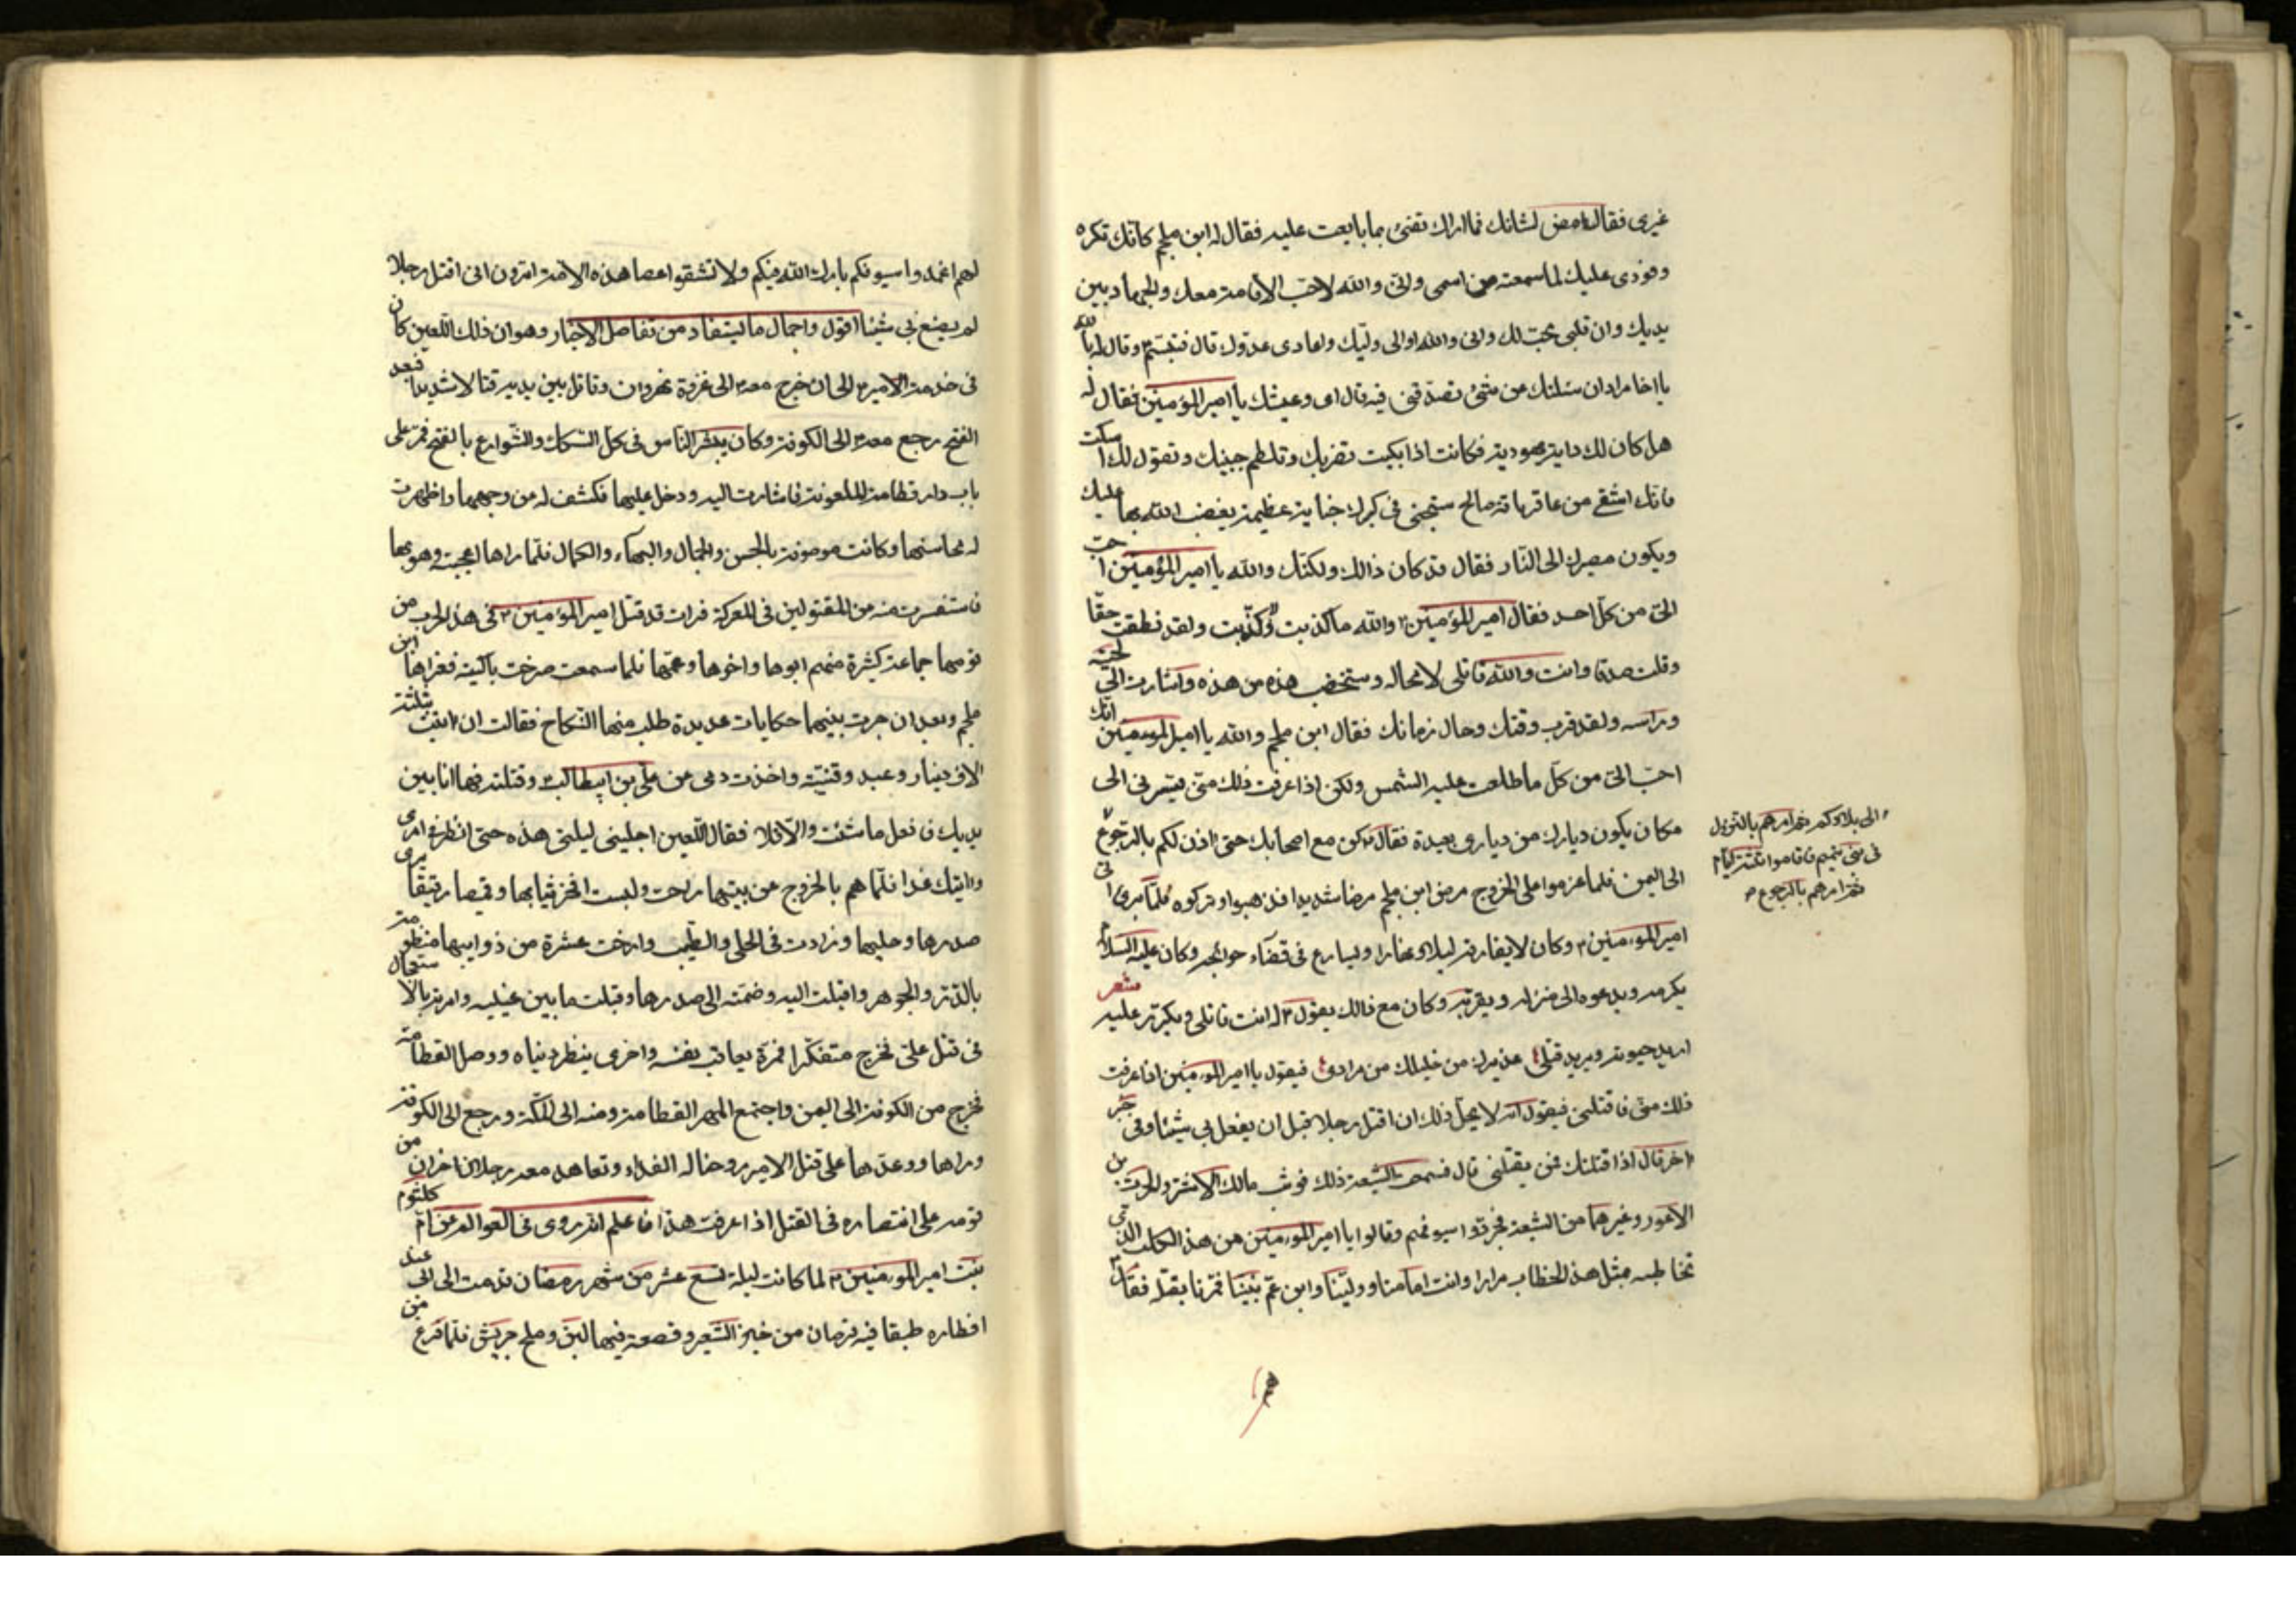 غيرى فقال امض لشانك فما اراك تفى بما بايعت عليه فقال له ابن ملجم كانك تكره
وفودى عليك لما سمعته من اسمى وانى والله لاحب الاقامة معك والجهاد بين
يديك وان قلبى محب لك وانى والله اوالى وليك واعادى عدوك قال فتبسم وقال له بالله
يا اخا مراد ان سئلتك عن شئ تصدقنى فيه قال اى وعيشك يا امير المؤمنين فقال له
هل كان لك داية يهودية فكانت اذا بكيت تضربك وتلطم جبينك وتقول لك اسكت
فانك اشقى من عاقر ناقة صالح ستجنى فى كبرك جناية عظيمة يغضب الله بها عليك
ويكون مصيرك الى النار فقال قد كان ذالك ولكنك والله يا امير المؤمنين احب
الى من كل احد فقال امير المؤمنين ٢ والله ما كذبت ولا كذبت ولقد نطقت حقا
وقلت صدقا وانت والله قاتلى لا محاله وستخضب هذه من هذه واشارت الى لحيته
وراسه ولقد قرب وقتك وحال زمانك فقال ابن ملجم والله يا امير المؤمنين انك
احب الى من كل ما طلعت عليه الشمس ولكن اذا عرفت ذلك منى فيسرنى الى
مكان يكون ديارك من ديارى بعيدة فقال كن مع اصحابك حتى اذن لكم بالرجوع
الى بلادكم ثم امرهم بالنزول
فى بنى تميم فاقاموا ثلثة ايام
ثم امرهم بالرجوع
الى اليمن فلما عزموا على الخروج مرض ابن ملجم مرضا شديدا فذهبوا وتركوه فلما برى اتى
امير المؤمنين ٢ وكان لا يفارقه ليلا ونهارا ويسارع فى قضاء حوائجه وكان عليه السلام
يكرمه ويدعوه الى منزله ويقربه وكان مع ذالك يقول له انت قاتلى ويكرر عليه شعر
اريد حيوته ويريد قتلى عذيرك من خليلك من مراد فيقول يا امير المؤمنين اذا عرفت
ذلك منى فاقتلنى فيقول انه لا يحل ذلك ان اقتل رجلا قبل ان يفعل بى شيئا وفى خبر
اخر قال اذا قتلتك فمن يقتلنى قال فسمعت الشيعة ذلك فوثب مالك الاشتر والحرث بن
الاعور وغيرهما من الشيعة فجردوا سيوفهم وقالوا يا امير المؤمنين من هذا الكلب الذى
تخاطبه بمثل هذا الخطاب مرارا وانت امامنا وولينا وابن عم نبينا فمرنا بقتله فقال
لهم اغمدوا سيوفكم بارك الله فيكم ولا تشقوا عصا هذه الامة اترون انى اقتل رجلا
لم يصنع بى شيئا اقول واجمال ما يستفاد من تفاصل الاخبار وهو ان ذلك اللعين كان
فى خدمة الامير ٢ الى ان خرج معه الى غزوة نهروان وقاتل بين يديه قتالا شديدا فبعد
الفتح رجع معه الى الكوفة وكان يبشر الناس فى كل السكك والشوارع بالفتح فمر على
باب دار قطامة الملعونة فاشارت اليه ودخل عليها فكشف له من وجهها واظهرت
له محاسنها وكانت موصوفة بالحسن والجمال والبهاء والكمال فلما راها اعجبته وهو بها
فاستفسرت منه من المقتولين فى المعركة فرات قد قتل امير المؤمنين ٢ فى هذ الحرب من
قومها جماعة كثيرة منهم ابوها واخوها وعمها فلما سمعت صرخت باكية فعزاها ابن
ملجم وبعد ان جرت بينهما حكايات عديدة طلب منها النكاح فقالت ان اتيت بثلثة
الاف دينار وعبد وقنية واخذت دمى من على بن ابيطالب وقتلته فها انا بين
يديك فافعل ما شئت والا فلا فقال اللعين اجلينى ليلتى هذه حتى انظر فى امرى
واتيك غدا فلما هم بالخروج عن بيتها راحت ولبست افخر ثيابها وقميصا رقيقا يرى
صدرها وحليها وزادت فى الحلى والطيب وارخت عشرة من ذوايبها منظومة
بالدر والجوهر واقبلت اليه وضمته الى صدرها وقبلت ما بين عينيه وامرته بالاستعجال
فى قتل على فخرج متفكرا فمرة يعاتب نفسه واخرى ينظر دنياه ووصل القطامة
فخرج من الكوفة الى اليمن واجتمع المهر القطامة ومنه الى المكة ورجع الى الكوفة
وراها ووعدها على قتل الامير روحنا له الفداء وتعاهد معه رجلان اخران من
قومه على انتصاره فى القتل اذا عرفت هذا فاعلم انه روى فى العوالم عن ام كلثوم
بنت امير المؤمنين ٢ لما كانت ليلة تسع عشر من شهر رمضان قدمت الى ابى عند
افطاره طبقا فيه قرصان من خبز الشعير وقصعة فيها لبن وملح جريش فلما فرغ من